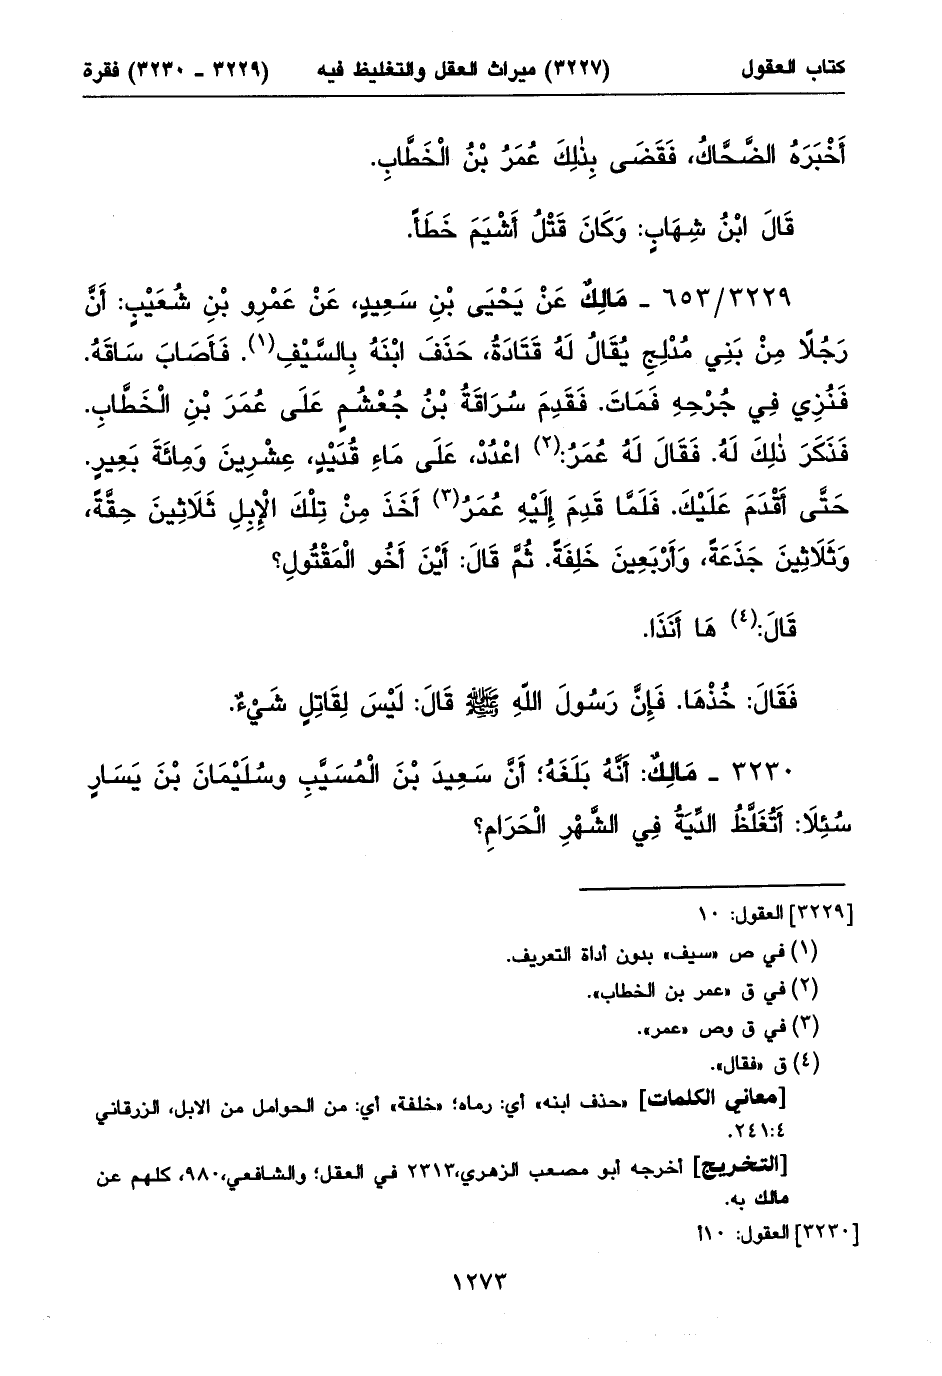 كتاب العقول (٣٢٢٧) ميراث العقل والتغليظ فيه (٣٢٢٩ ـ ٣٢٣٠) فقرة
أَخْبَرَهُ الضَّحَّاكُ، فَقَضَى بِذٰلِكَ عُمَرُ بْنُ الْخَطَّابِ.
قَالَ ابْنُ شِهَابٍ: وَكَانَ قَتْلُ أَشْيَمَ خَطَأً.
٦٥٣/٣٢٢٩ ـ مَالِكٌ عَنْ يَحْيَى بْنِ سَعِيدٍ، عَنْ عَمْرِو بْنِ شُعَيْبٍ: أَنَّ
رَجُلًا مِنْ بَنِي مُدْلِجٍ يُقَالُ لَهُ قَتَادَةُ، حَذَفَ ابْنَهُ بِالسَّيْفِ(١). فَأَصَابَ سَاقَهُ.
فَنُزِي فِي جُرْحِهِ فَمَاتَ. فَقَدِمَ سُرَاقَةُ بْنُ جُعْشُمٍ عَلَى عُمَرَ بْنِ الْخَطَّابِ.
فَذَكَرَ ذٰلِكَ لَهُ. فَقَالَ لَهُ عُمَرُ:(٢) اعْدُدْ، عَلَى مَاءِ قُدَيْدٍ، عِشْرِينَ وَمِائَةَ بَعِيرٍ.
حَتَّى أَقْدَمَ عَلَيْكَ. فَلَمَّا قَدِمَ إِلَيْهِ عُمَرُ(٣) أَخَذَ مِنْ تِلْكَ الْإِبِلِ ثَلَاثِينَ حِقَّةً،
وَثَلَاثِينَ جَذَعَةً، وَأَرْبَعِينَ خَلِفَةً. ثُمَّ قَالَ: أَيْنَ أَخُو الْمَقْتُولِ؟
قَالَ:(٤) هَا أَنَذَا.
فَقَالَ: خُذْهَا. فَإِنَّ رَسُولَ اللّهِ ﷺ قَالَ: لَيْسَ لِقَاتِلٍ شَيْءٌ.
٣٢٣٠ ـ مَالِكٌ: أَنَّهُ بَلَغَهُ؛ أَنَّ سَعِيدَ بْنَ الْمُسَيَّبِ وسُلَيْمَانَ بْنَ يَسَارٍ
سُئِلَا: أَتُغَلَّظُ الدِّيَةُ فِي الشَّهْرِ الْحَرَامِ؟
[٣٢٢٩] العقول: ١٠
(١) في ص «سيف» بدون أداة التعريف.
(٢) في ق «عمر بن الخطاب».
(٣) في ق وص «عمر».
(٤) ق «فقال».
[معاني الكلمات] «حذف ابنه» أي: رماه؛ «خلفة» أي: من الحوامل من الابل، الزرقاني
٢٤١:٤.
[التخريج] أخرجه أبو مصعب الزهري،٢٣١٣ في العقل؛ والشافعي،٩٨٠، كلهم عن
مالك به.
[٣٢٣٠] العقول: ١٠أ
١٢٧٣